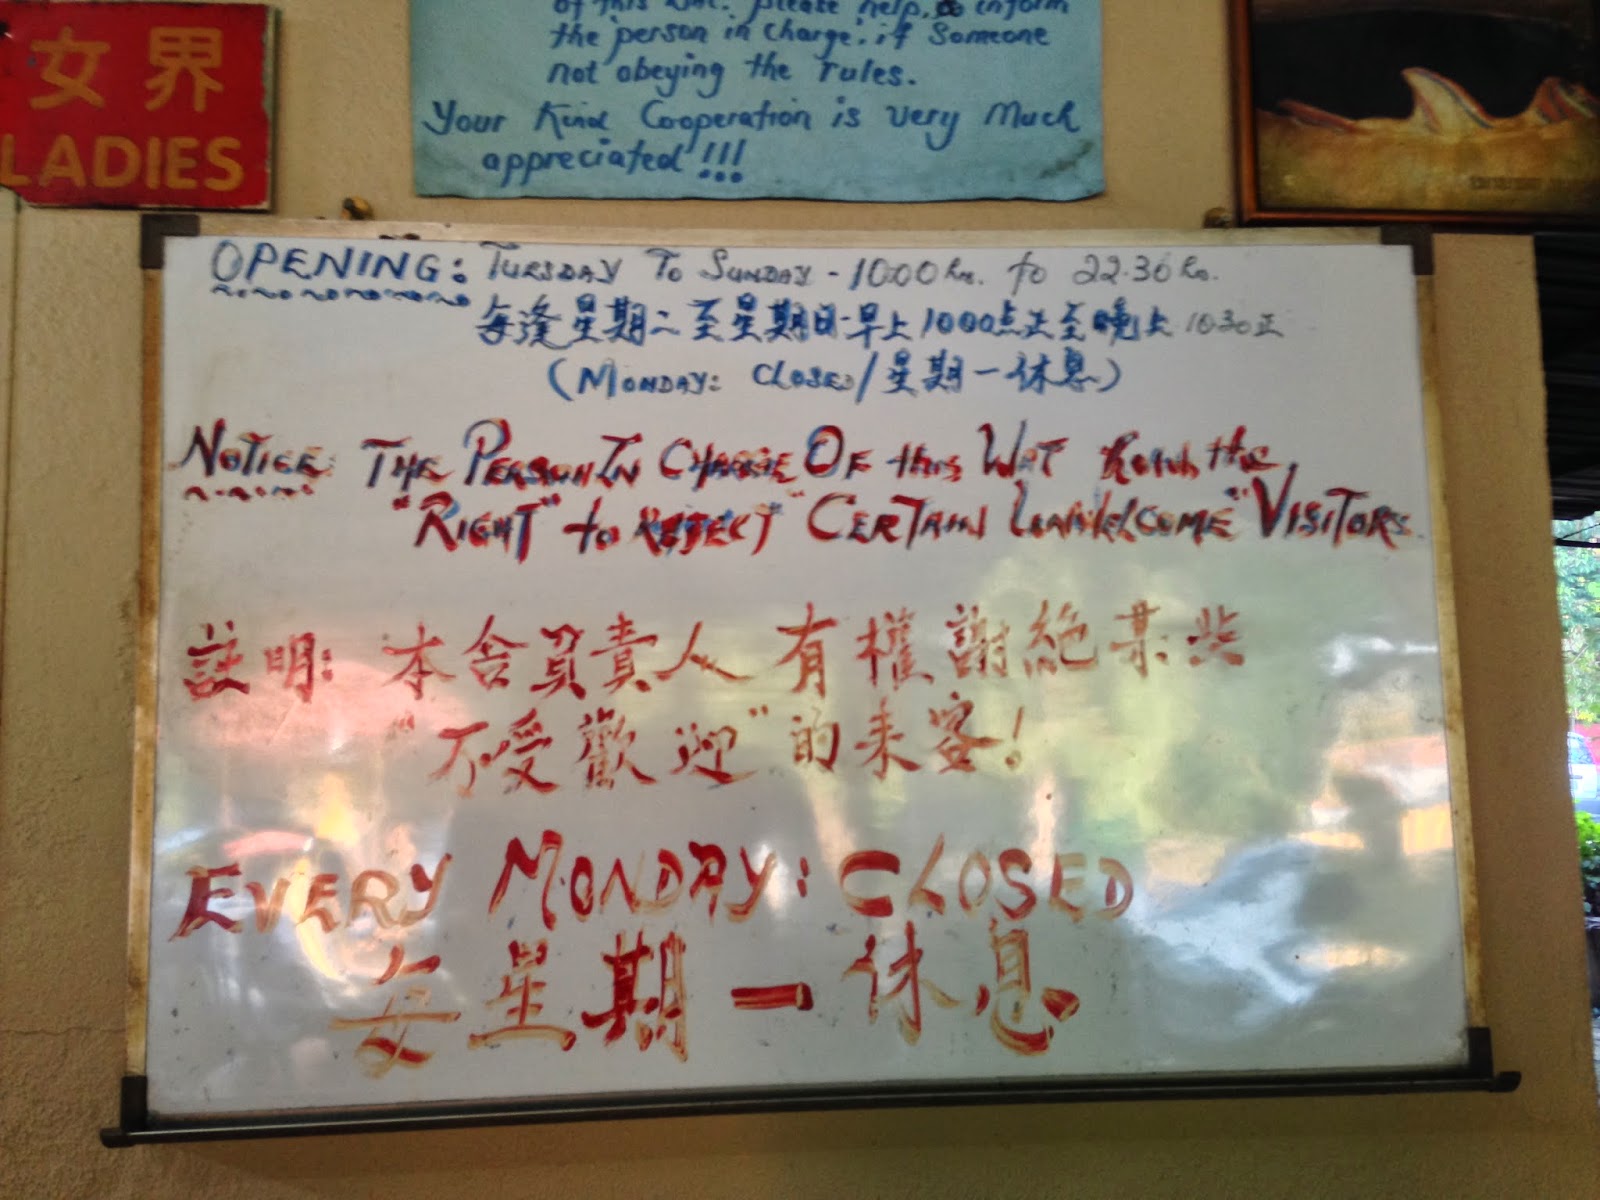 女界
LADIES
of this Wat. Please help to inform
the person in charge: if Someone
not obeying the rules.
Your Kind Cooperation is very Much
appreciated!!!
OPENING: TUESDAY TO SUNDAY - 10:00 Hrs. to 22.30 Hrs.
每逢星期二至星期日-早上1000点正至晚上1030正
(MONDAY: CLOSED/星期一休息)
NOTICE: THE PERSON IN CHARGE OF this WAT the
"RIGHT" to REJECT "CERTAIN UNWELCOME" VISITORS.
註明: 本舍負責人有權謝絕某些
"不受歡迎"的来客!
EVERY MONDAY: CLOSED
每星期一休息